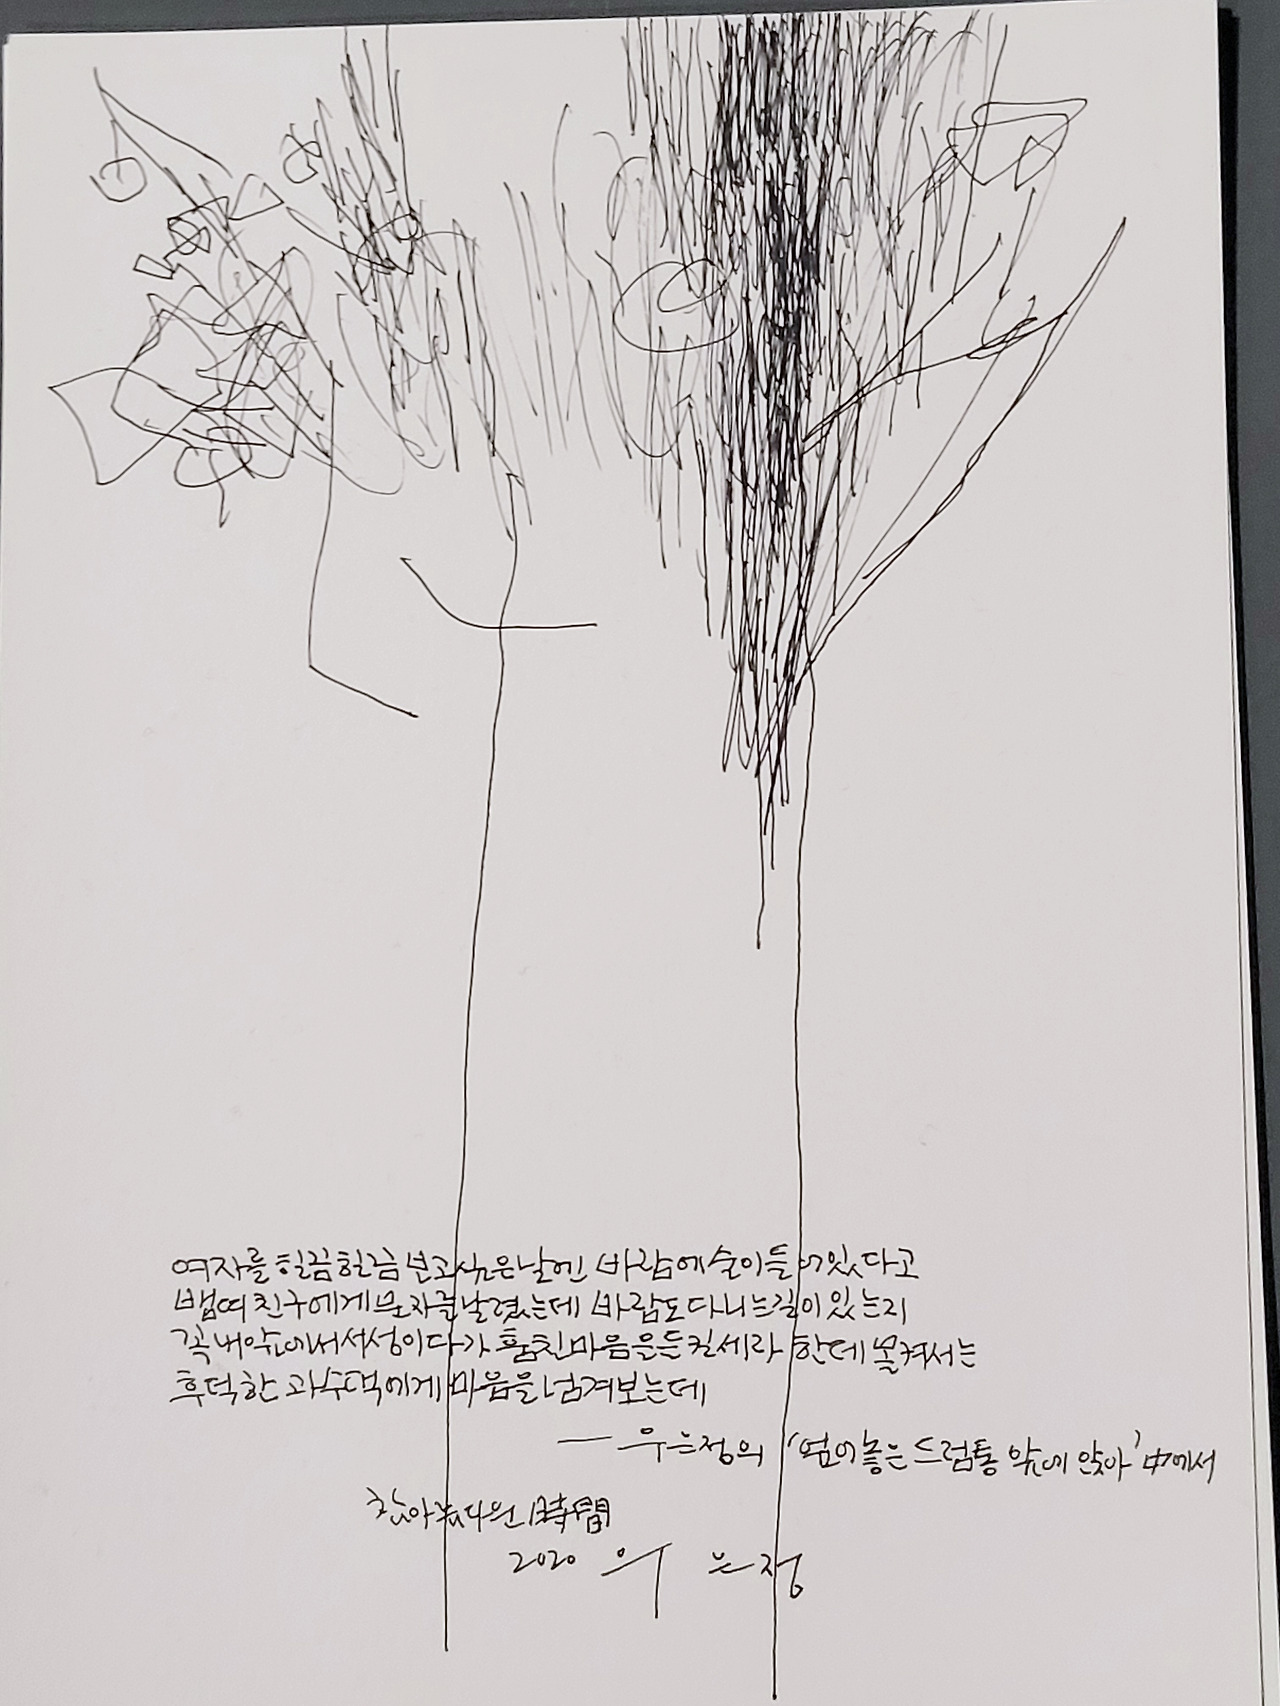 여자를 힐끔힐끔 보고싶은날엔 바람에술이들어있다고
뱁여친구에게문자를날렸는데 바람도다니는길이있는지
꼭내앞에서서성이다가 훔친마음을들킬세라 한데몰켜서는
후덕한 과수댁에게 마음을넘겨보는데
— 우은정의 '엎어놓은 드럼통 앞에 앉아' 中에서
時間
2020 우 은정